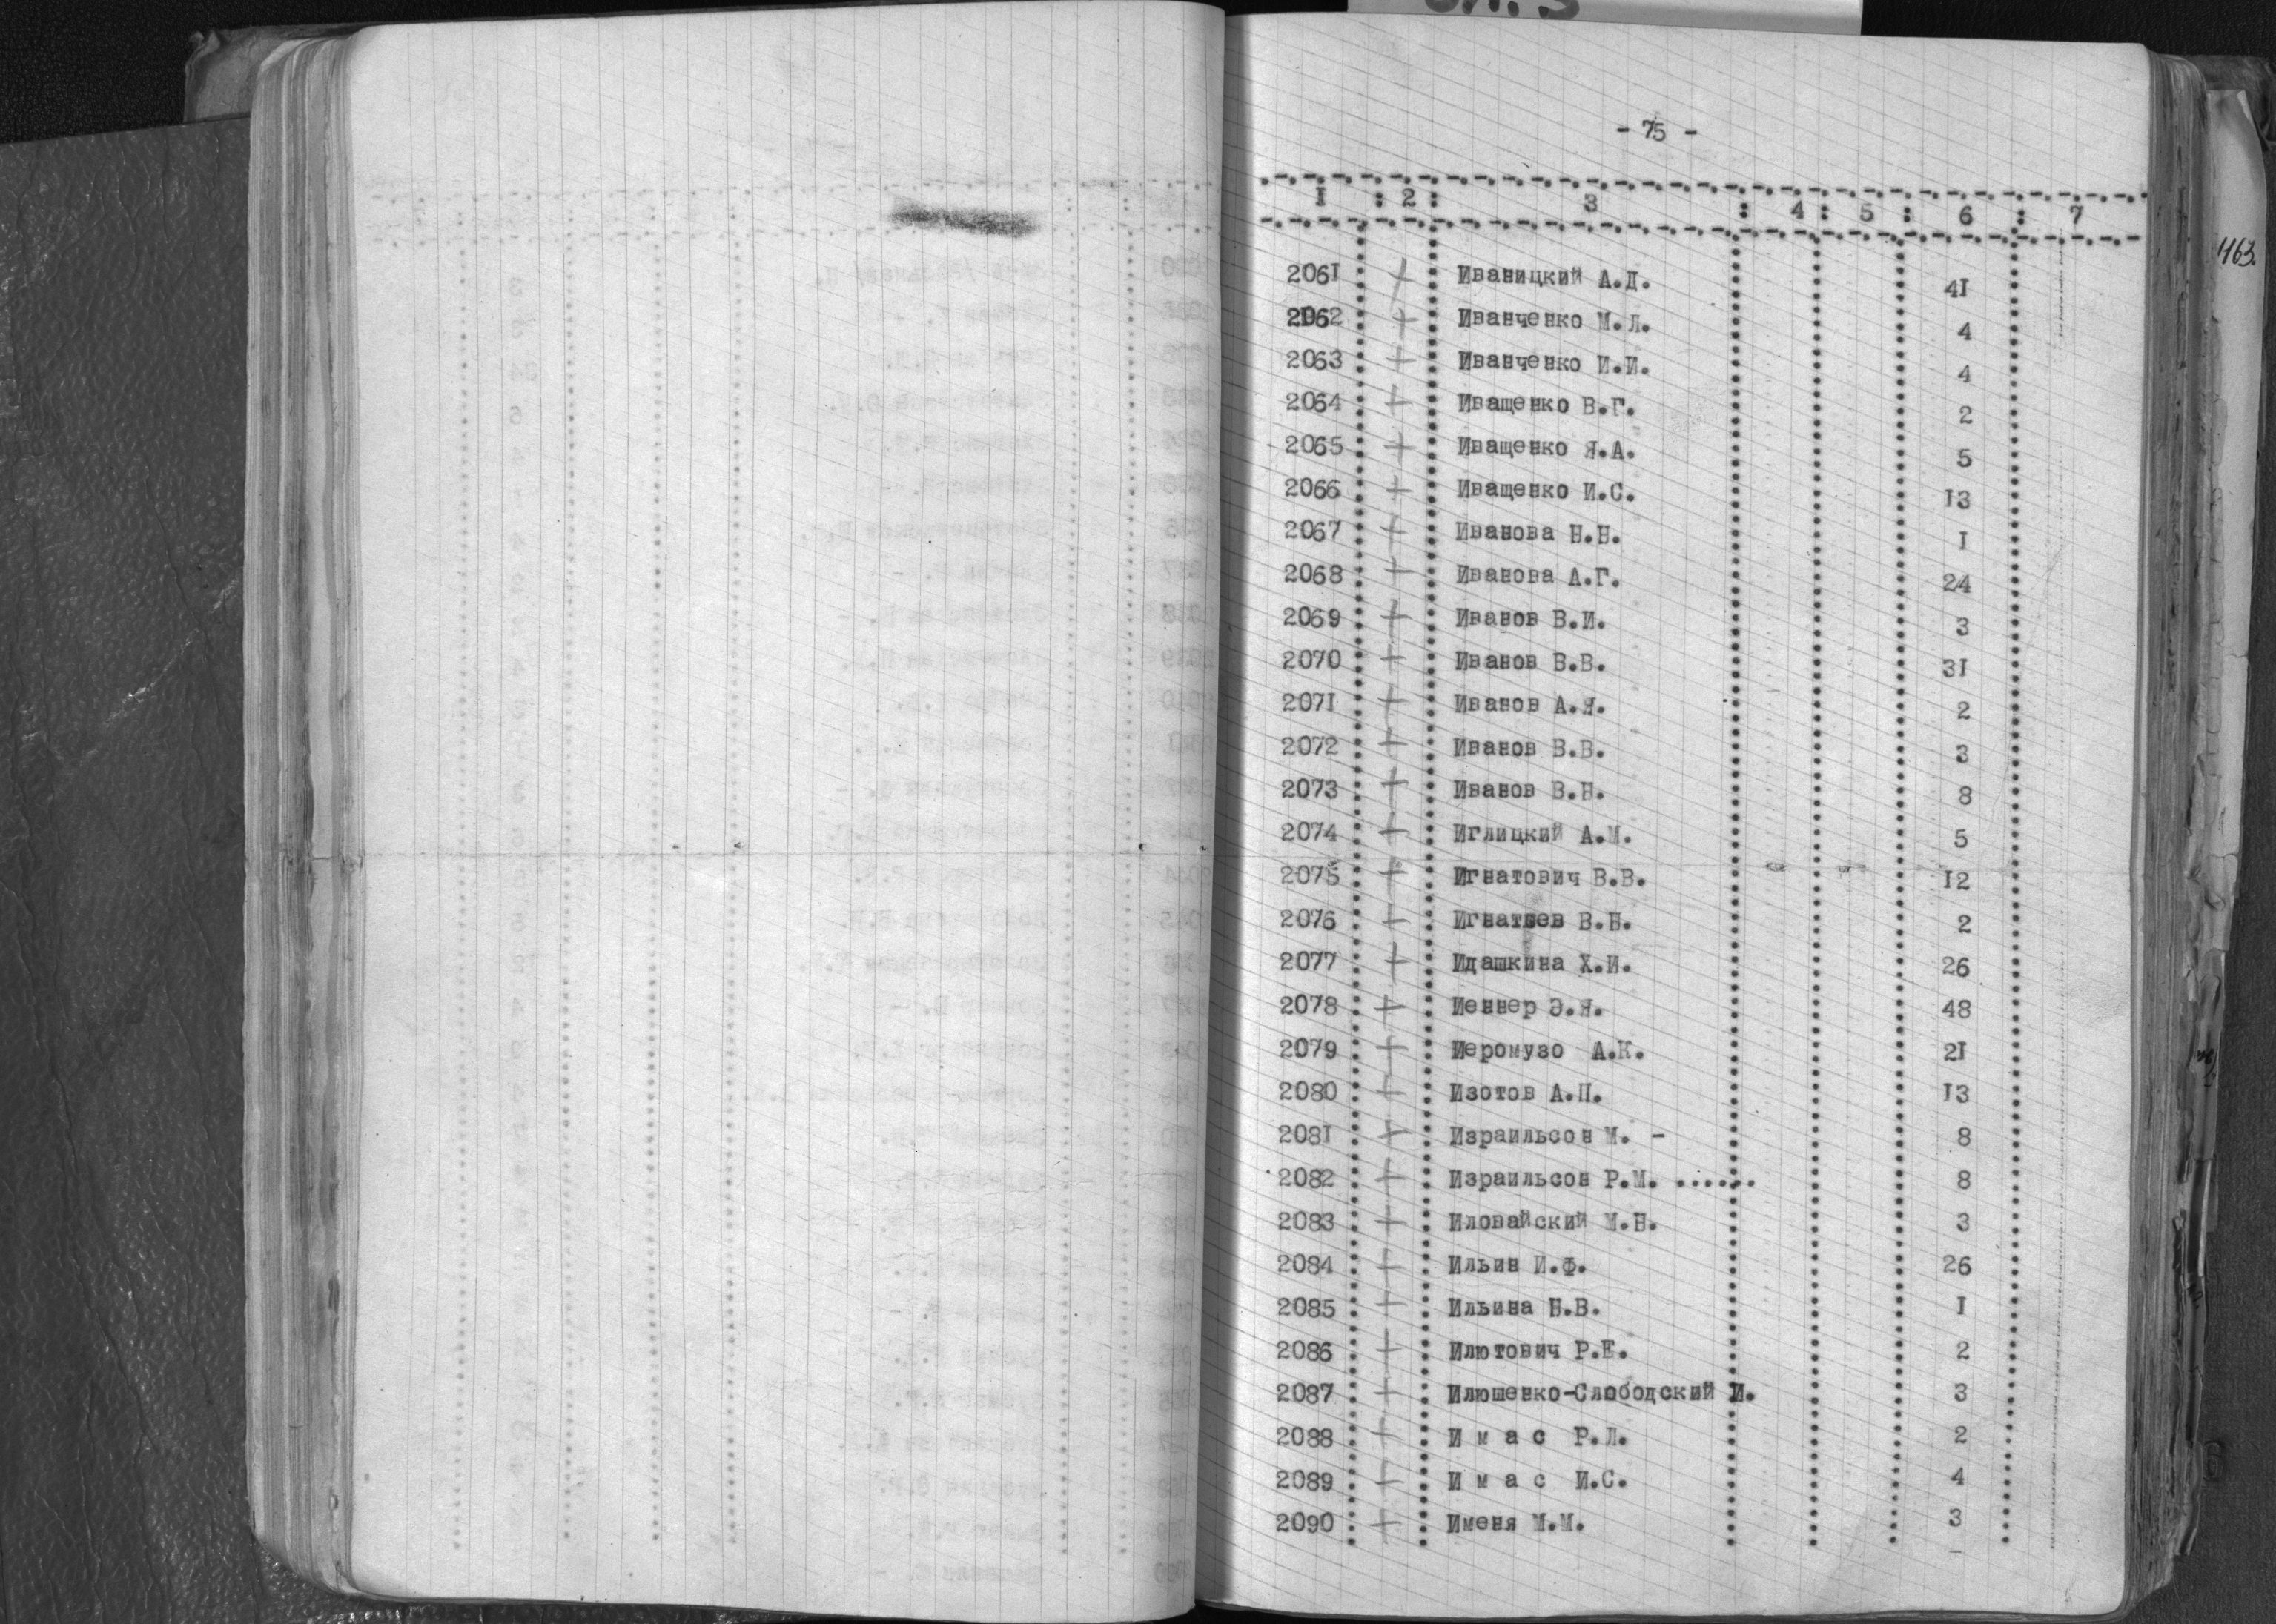 - 75 -
1 : 2 : 3 : 4 : 5 : 6 : 7
1163.
2061 + Иваницкий А.Д. 41
2062 + Иванченко М.Л. 4
2063 + Иванченко И.И. 4
2064 + Иващенко В.Г. 2
2065 + Иващенко Я.А. 5
2066 + Иващенко И.С. 13
2067 + Иванова Н.Н. 1
2068 + Иванова А.Г. 24
2069 + Иванов В.И. 3
2070 + Иванов В.В. 31
2071 + Иванов А.Я. 2
2072 + Иванов В.В. 3
2073 + Иванов В.Н. 8
2074 + Иглицкий А.М. 5
2075 + Игнатович В.В. 12
2076 + Игнатьев В.Н. 2
2077 + Идашкина Х.И. 26
2078 + Иеннер Э.Я. 48
2079 + Иеромузо А.К. 21
2080 + Изотов А.П. 13
2081 + Израильсон М. - 8
2082 + Израильсон Р.М. ...... 8
2083 + Иловайский М.Н. 3
2084 + Ильин И.Ф. 26
2085 + Ильина Н.В. 1
2086 + Илютович Р.Е. 2
2087 + Илюшенко-Слободский И. 3
2088 + И м а с Р.Л. 2
2089 + И м а с И.С. 4
2090 + Именя М.М. 3